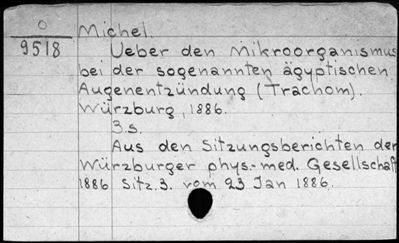 O
9518
Michel.
Ueber den Mikroorganismus
bei der sogenannten ägyptischen
Augenentzündung (Trachom).
Würzburg, 1886.
3.s.
Aus den Sitzungsberichten der
Würzburger phys.-med. Gesellschaft
1886 Sitz.3. vom 23 Jan 1886.